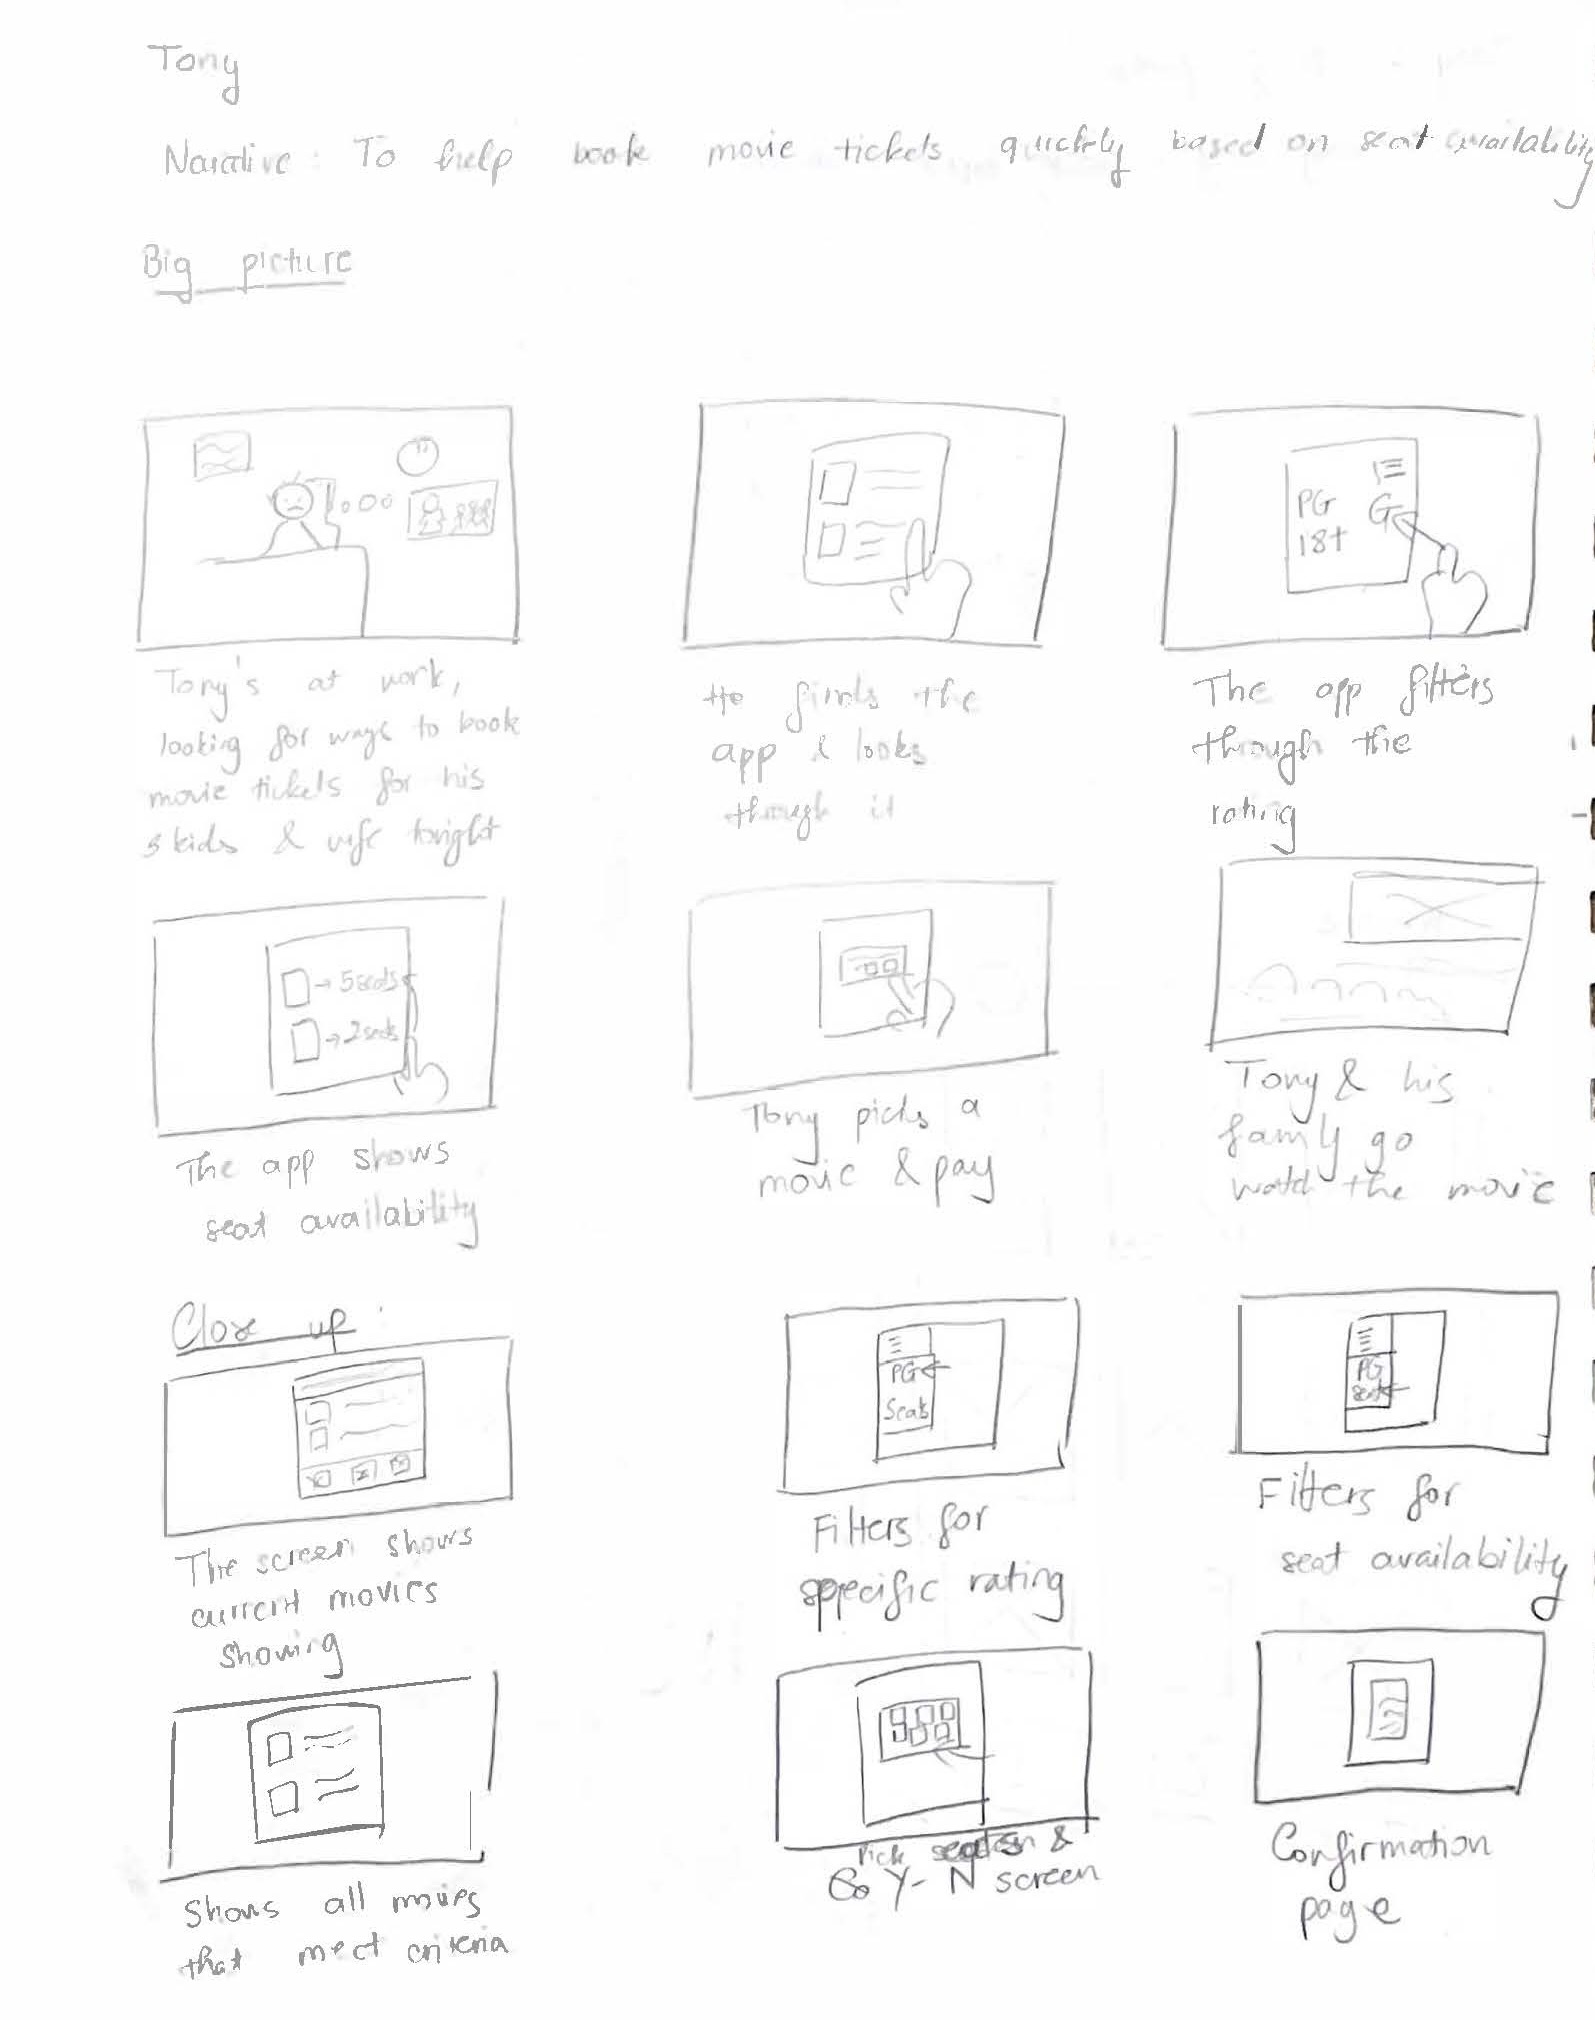 Tony
Narrative: To help book movie tickets quickly based on seat availability
Big picture
PG G
18+
Tony's at work,
looking for ways to book
movie tickets for his
3 kids & wife tonight
He finds the
app & looks
through it
The app filters
through the
rating
→ 5 seats
→ 2 seats
The app shows
seat availability
Tony picks a
movie & pay
Tony & his
family go
watch the movie
Close up:
PG
Seats
PG
seats
The screen shows
current movies
showing
Filters for
specific rating
Filters for
seat availability
Shows all movies
that meet criteria
Pick seats &
Y-N screen
Confirmation
page